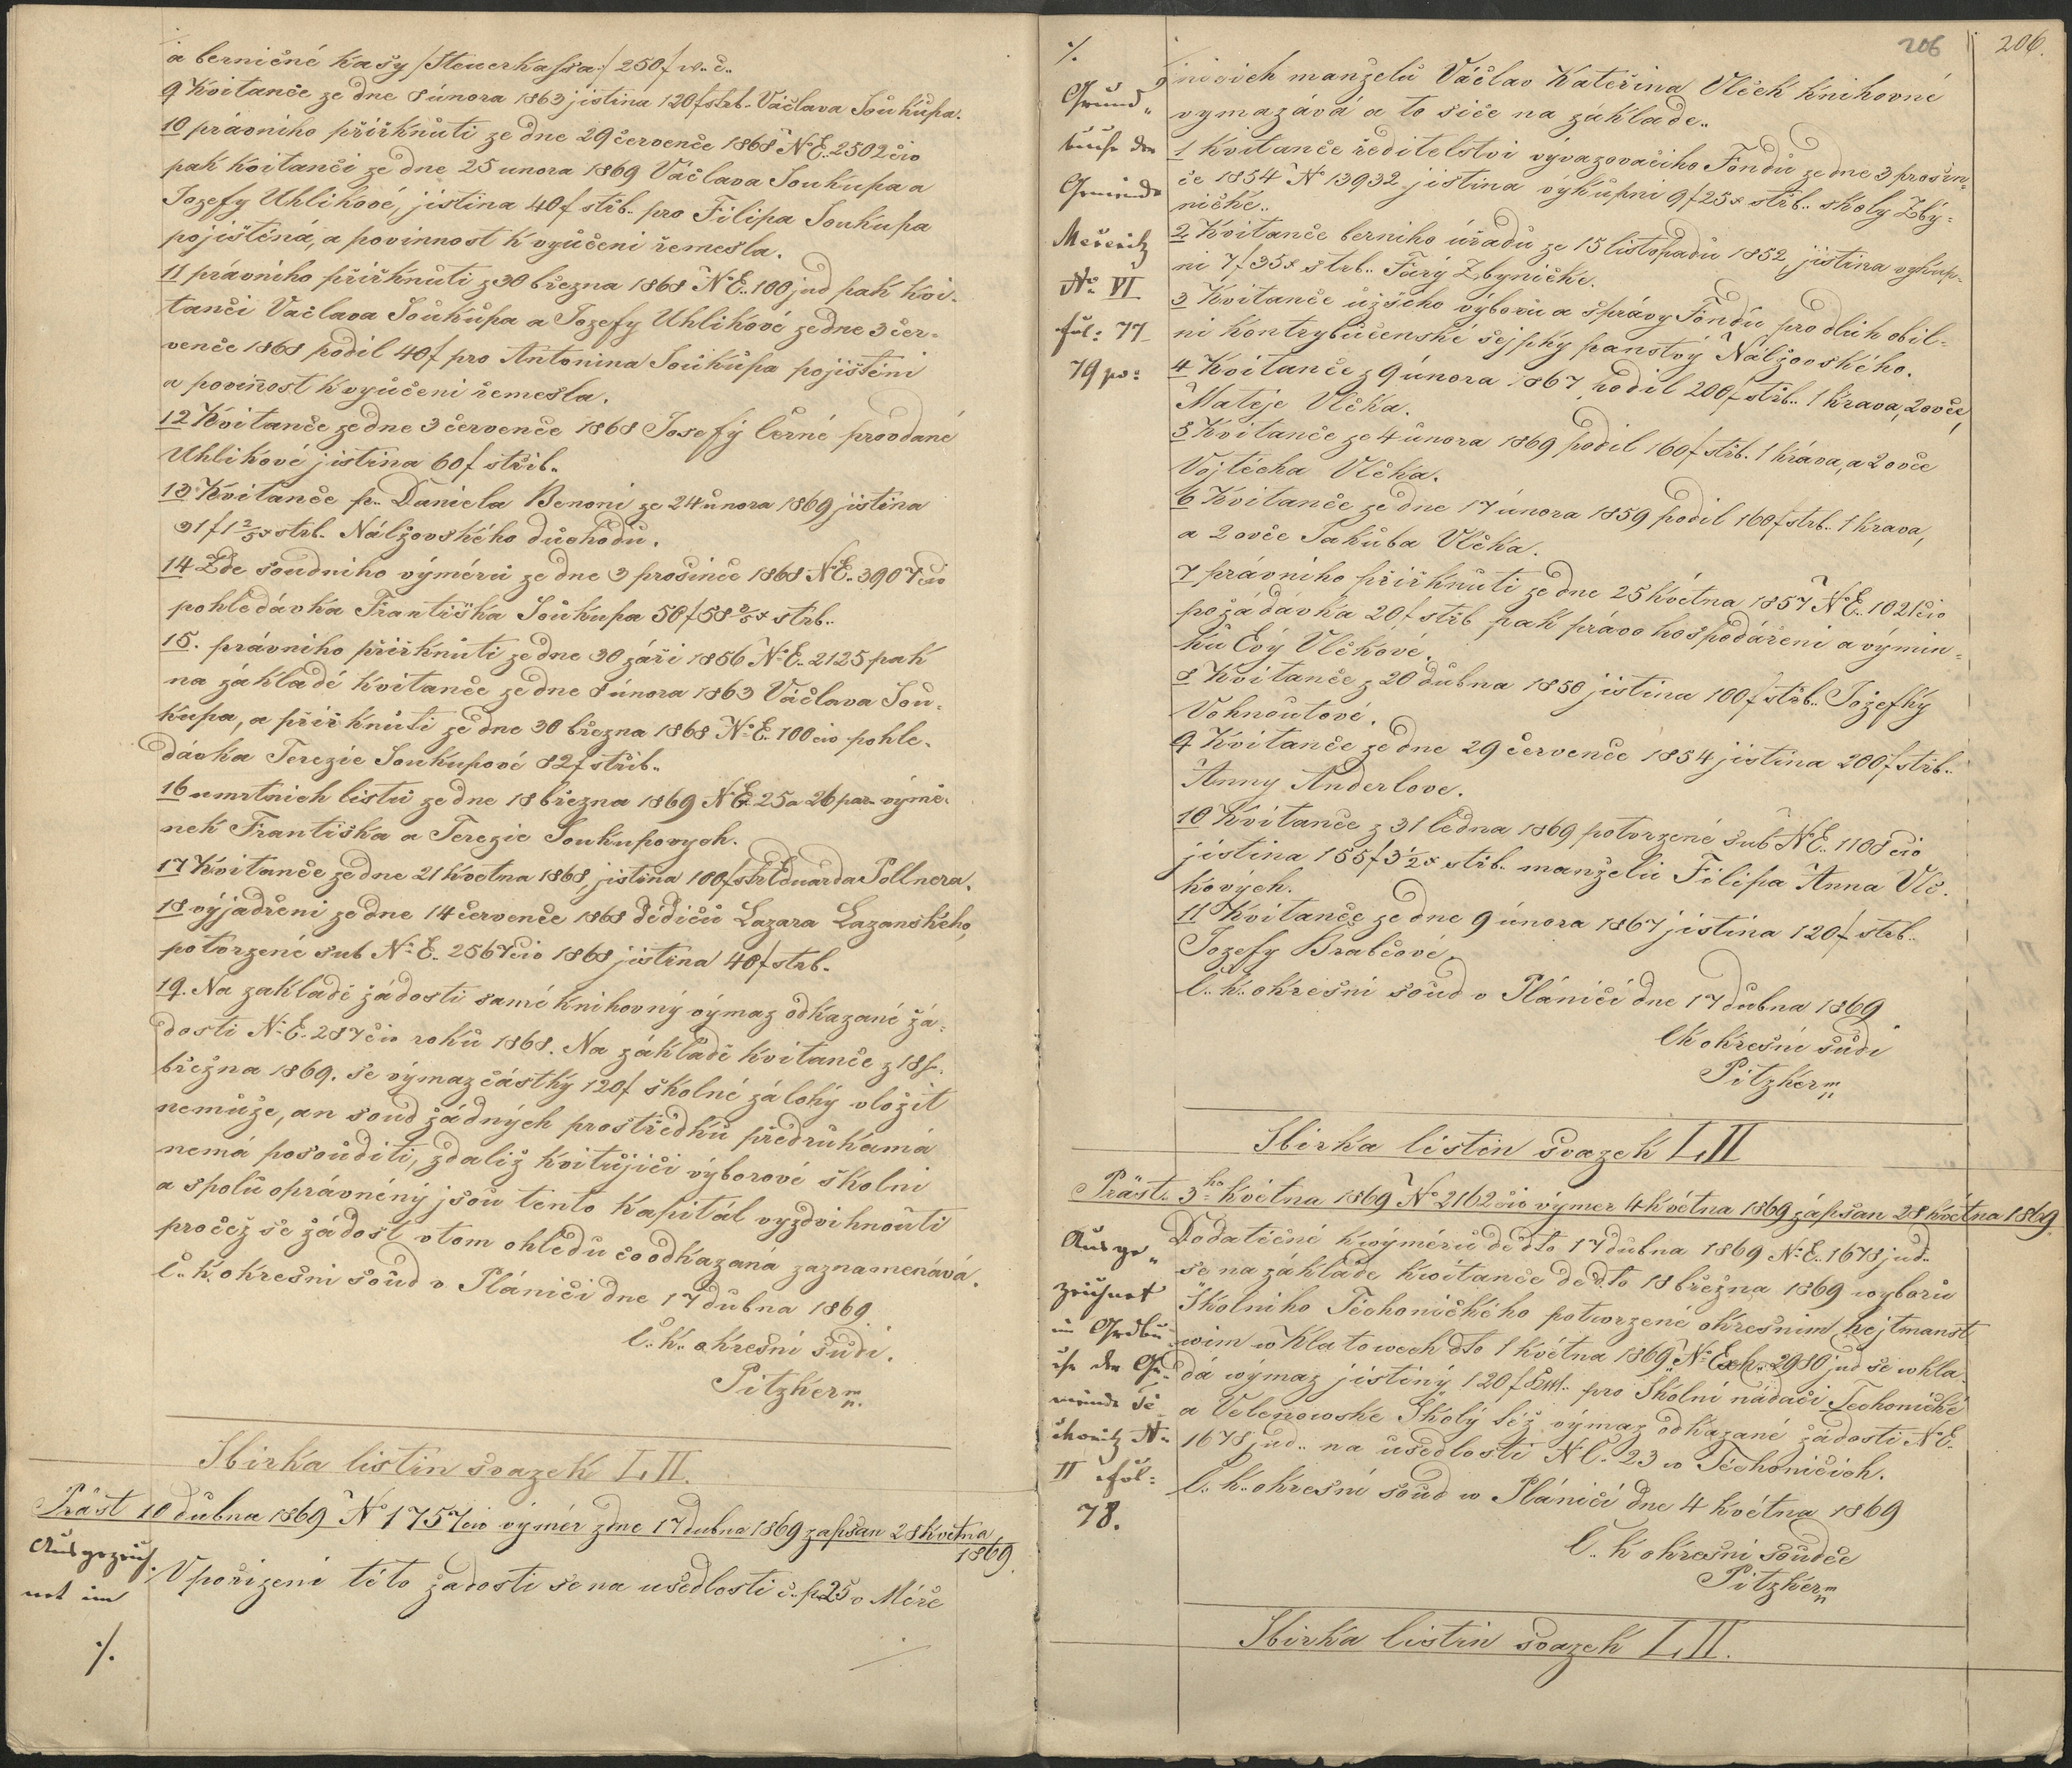 a berničné kasy /:Steuerkassa:/ 250f w. č.
9 Kvitanče ze dne 8 února 1863 jistina 120f strb. Václava Soukupa.
10 právniho přiřknuti ze dne 29 července 1868 N.E. 2502 civ
pak kvitanči ze dne 25 unora 1869 Václava Soukupa a
Jozefy Uhlikové, jistina 40f střb. pro Filipa Soukupa
pojištěná, a povinnost k vyučeni řemesla.
11 právniho přiřknuti z 30 března 1868 N.E. 100 jud pak kvi-
tanči Vačlava Soukupa a Jozefy Uhlikové ze dne 3 čer-
venče 1868 podil 40f pro Antonina Soukupa pojištěni
a povinost k vyučeni řemesla.
12 Kvitanče ze dne 3 července 1868 Josefy černé provdané
Uhlikové jistina 60f střib.
13 Kvitanče p. Daniela Benoni ze 24 února 1869 jistina
31f 1 2/5x strb. Nálžovského důchodu.
14 Zde soudniho výměru ze dne 3 prosinče 1868 N.E. 3907 civ
pohledávka Františka Soukupa 58f 58 2/5x strb.
15. právniho přiřknuti ze dne 30 záři 1856 N.E. 2125 pak
na základě kvitanče ze dne 8 února 1863 Václava Sou-
kupa, a přiřknuti ze dne 30 března 1868 N.E. 100 civ pohle-
dávka Terezie Soukupové 82f střib.
16 umrtnich listů ze dne 18 března 1869 N.E. 25 a 26 par. výmě-
nek Františka a Terezie Soukupovych.
17 Kvitanče ze dne 21 května 1868, jistina 100f strb Eduarda Pollnera.
18 vyjádřeni ze dne 14 července 1868 dědičů Lazara Lazanského,
potvrzené sub N.E. 2567 civ 1868 jistina 40f strb.
19. Na zakladě žádosti samé knihovný výmaz odkazané žá-
dosti N.E. 287 civ roku 1868. Na základě kvitanče z 18
března 1869. se výmaz částky 120f školné zálohy vložit
nemůže, an soud žádných prostředků předrukamá
nemá posouditi, zdaliž kvitujiči výborové školni
a spolu oprávněný jsou tento kapitál vyzdvihnouti
pročež se žádost vtom ohledu co odkazaná zaznamenává.
C. k. okresni soud v Plániči dne 17 dubna 1869.
C. k. okresní sudi.
Pitzker m.
Sbirka listin svazek LII.
Präst 10 dubna 1869 N 1757 civ výměr z dne 17 dubna 1869 zapsan 28 května
1869.
Ausgezeich-
net im
V pořizeni této žadosti se na usedlosti č. p. 25 v Měče
./.
206
206.
./.
Grund-
buche der
Gemeinde
Mečeritz
No VI
fol: 77
79 po:
nicich manželů Václav Kateřina Vlček knihovně
vymazává a to siče na základe.
1 Kvitanče ředitelstvi vývazovačiho Fondu ze dne 3 prosin-
če 1854 N 13932 jistina výkupni 9f 25x strb. školy Zby-
ničke.
2 Kvitanče berniho úřadu ze 15 listopadu 1852 jistina vykup-
ni 7f 35x strb. Fáry Zbyničke.
3 Kvitanče užšího výboru a správy Fondu pro dluh obil-
ni kontrybučenské sejpky panstvý Nálžovského.
4 Kvitanče z 9 února 1867 podil 200f strb. 1 krava, 2 ovče,
Matěje Vlčka.
5 Kvitanče ze 4 února 1869 podil 160f strb. 1 kráva, a 2 ovče
Vojtěcha Vlčka.
6 Kvitanče ze dne 17 února 1859 podil 160f strb. 1 krava,
a 2 ovče Jakuba Vlčka.
7 právniho přiřknuti ze dne 25 května 1857 N.E. 1021 civ
požádávka 20f strb pak právo hospodářeni a výmin-
ku Evy Vlčkové.
8 Kvitanče z 20 dubna 1850 jistina 100f strb. Jozefky
Vohnoutové.
9 Kvitanče ze dne 29 července 1854 jistina 200f strb.
Anny Anderlove.
10 Kvitanče z 31 ledna 1869 potvrzené sub N.E. 1108 civ
jistina 155f 3 1/2x strb. manželů Filipa Anna Vlč-
kových.
11 Kvitanče ze dne 9 února 1867 jistina 120f strb.
Jozefy Brabčové.
C. k. okresni soud v Pláničí dne 17 dubna 1869
Ck okresní sudi
Pitzker m
Sbirka listin svazek LII
Präst. 3ho května 1869 No 2162 civ výmer 4 května 1869 zápsan 28 května 1869.
Ausge-
zeichnet
im Grdbu-
che der Ge-
meinde Te-
chonitz No
II fol:
78.
Dodatečné kwýměru dedto 17 dubna 1869 N.E. 1678 jud.
se na základe kwitanče dedto 18 března 1869 wyboru
Školniho Těchoničkého potwrzené okresnim hejtmanst
wim w Klatowech dto 1 května 1869 N. Exh. 2980 jud se wkla-
dá výmaz jistiny 120f pro Školni nádači Techoničké
a Velenowske Školy lež výmaz odkazané žádosti N.E.
1678 jud. na usedlosti N.C. 23 w Těchoničich.
C. k. okresní soud w Pláničí dne 4 května 1869
C. k okresni soudče
Pitzker m
Sbirka listin svazek LII.